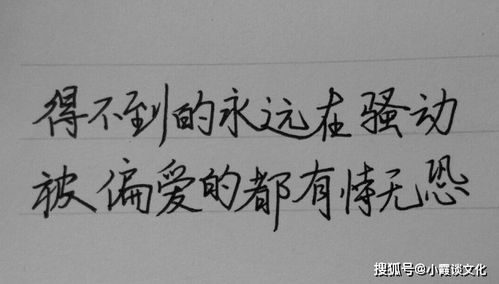 得不到的永远在骚动
被偏爱的都有恃无恐
搜狐号@小霞谈文化